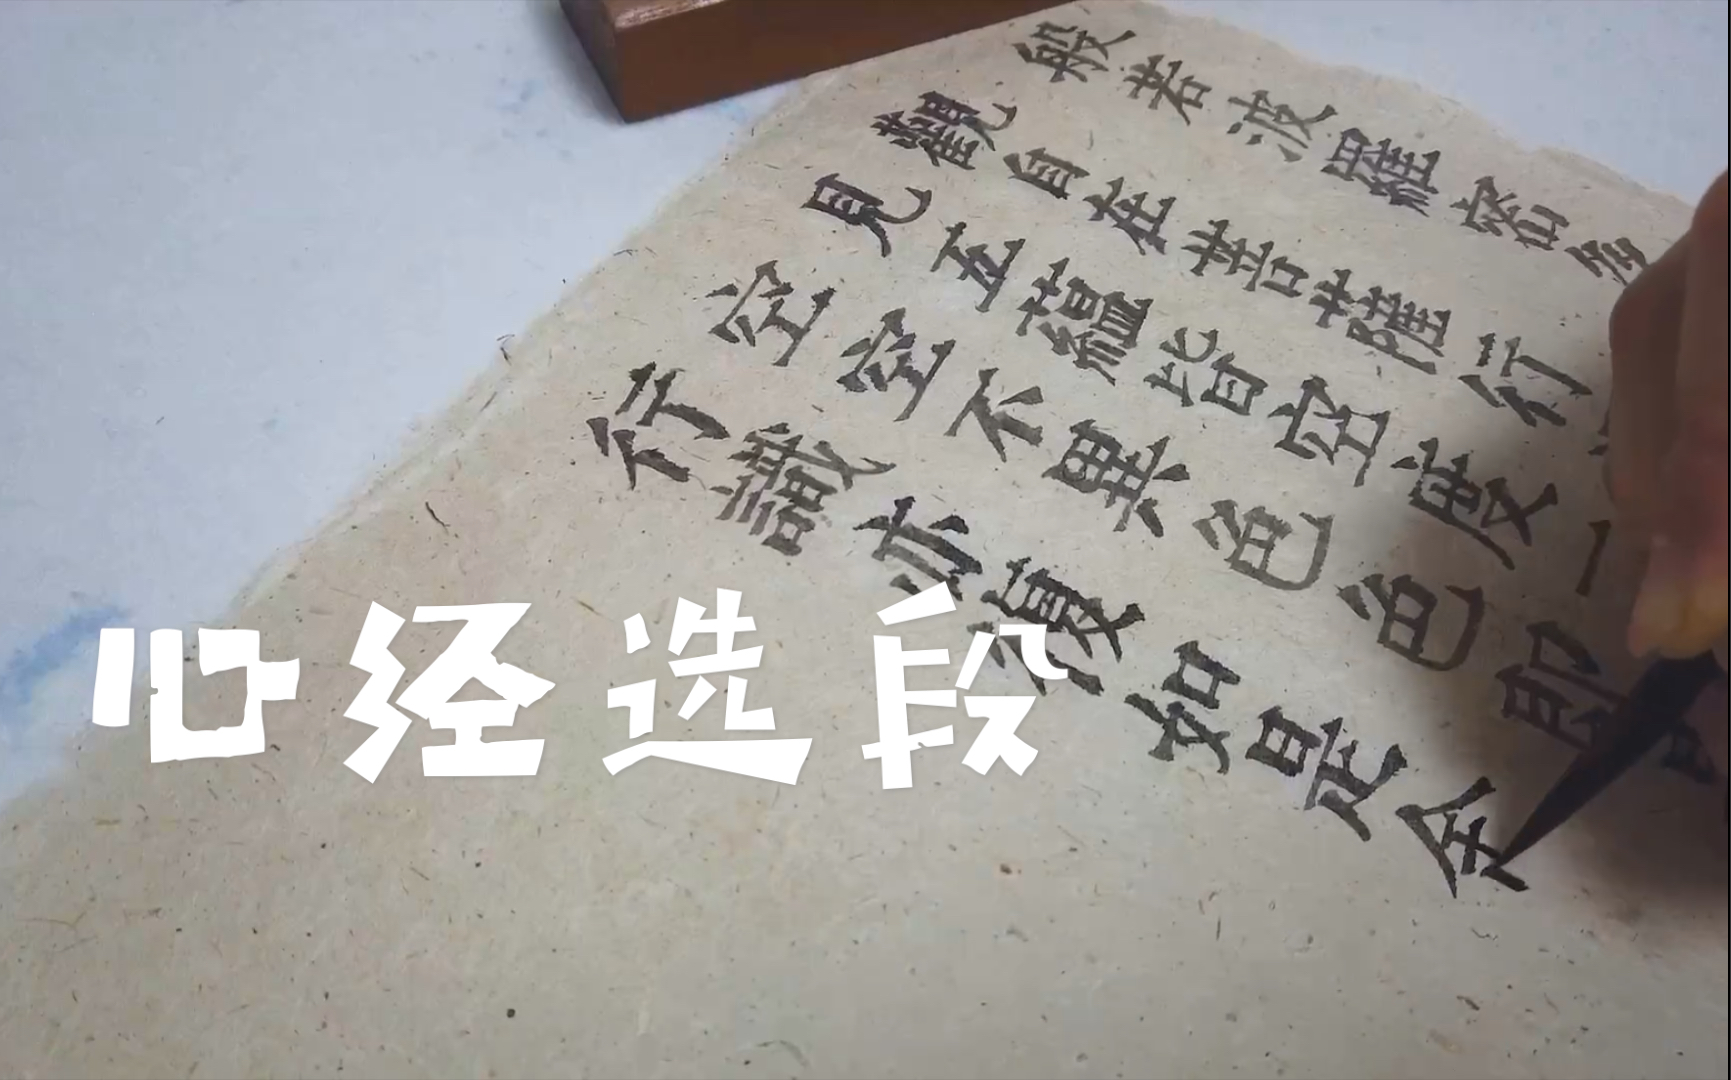 般若波羅密多
觀自在菩薩行
見五蘊皆空度一
空空不異色色即
行識亦復如是
心经选段